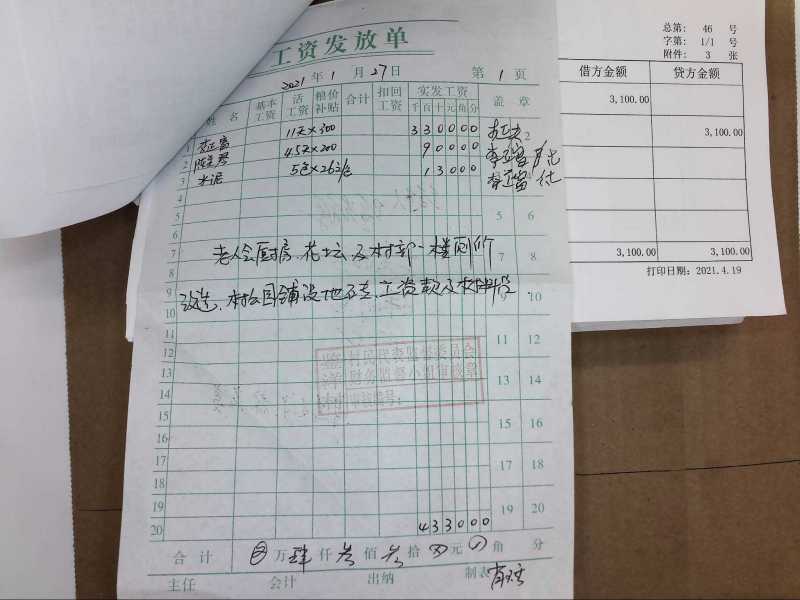 总第: 46 号
字第: 1/1 号
附件: 3 张
借方金额 贷方金额
3,100.00
3,100.00
3,100.00 3,100.00
打印日期: 2021.4.19
工资发放单
2021年1月27日 第1页
姓名 基本工资 活工资 粮价补贴 合计 扣回工资 实发工资 盖章
千百十元角分
1 11天×300 330000 2
2 45天×200 90000
3 水泥 5包×26元/包 13000
4
5 5 6
6
7 老人会厨房、花坛及村部一楼厕所 7 8
8
9 改造、村公园铺设地 工资款及材料 10
10
11 11 12
12
13 村民代表监督委员会
14 财务监督小组审核章 13 14
15 15 16
16
17 17 18
18
19 19 20
20 433000
合计 万肆仟叁佰叁拾 元 角 分
主任 会计 出纳 制表